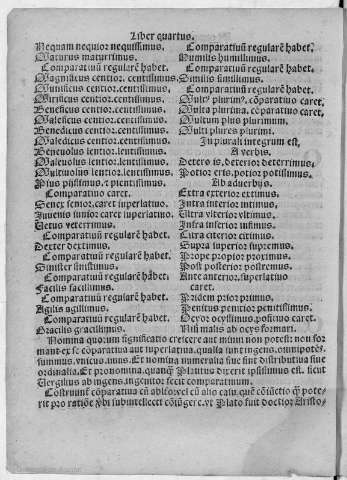 Liber quartus.
Nequam nequior nequissimus.
Maturus maturrimus.
Comparatiuũ regularẽ habet.
Magnificus centior. centissimus.
Munificus centior. centissimus.
Mirificus centior. centissimus.
Beneficus centior. centissimus.
Maleficus centior. centissimus.
Benedicus centior. centissimus.
Maledicus centior. centissimus.
Beneuolus lentior. lentissimus.
Maleuolus lentior. lentissimus.
Multuolus lentior. lentissimus.
Pius pijssimus. & pientissimus.
Comparatiuo caret.
Senex senior. caret superlatiuo.
Iuuenis iunior caret superlatiuo.
Vetus veterrimus.
Comparatiuũ regularẽ habet.
Dexter dextimus.
Comparatiuũ regularẽ habet.
Sinister sinistimus.
Comparatiuũ regularẽ habet.
Facilis facillimus.
Comparatiuũ regularẽ habet.
Agilis agillimus.
Comparatiuũ regularẽ habet.
Gracilis gracillimus.
Comparatiuũ regularẽ habet.
Humilis humillimus.
Comparatiuũ regularẽ habet.
Similis simillimus.
Comparatiuũ regularẽ habet.
Multꝰ plurimꝰ. cõparatiuo caret.
Multa plurima. cõparatiuo caret.
Multum plus plurimum.
Multi plures plurimi.
In plurali integrum est.
A verbis.
Detero is. deterior deterrimus.
Potior eris. potior potissimus.
Ab aduerbijs.
Extra exterior extimus.
Intra interior intimus.
Vltra vlterior vltimus.
Infra inferior infimus.
Citra citerior citimus.
Supra superior supremus.
Prope propior proximus.
Post posterior postremus.
Ante anterior. superlatiuo
caret.
Pridem prior primus.
Penitus penitior penitissimus.
Ocyor ocyssimus. positiuo caret.
Nisi malis ab ocys formari.
Nomina quorum significatio crescere aut minui non potest: non for
mantur se cõparatiua aut superlatiua. qualia sunt ingens. omnipotẽs.
summus. vnicus. imus. Et nomina numeralia siue sint distributiua siue
ordinalia. Et pronomina. quanq̃ Plautus dixerit ipsissimus est. sicut
Vergilius ab ingens. ingentior fecit comparatiuum.
Construunt̃ cõparatiua cũ ablto: vel cũ alio casu. quẽ cõiũctio q̃ pote-
rit pro ratiõe ṽbi subintellecti cõiũgere. vt Plato fuit doctior Aristo-